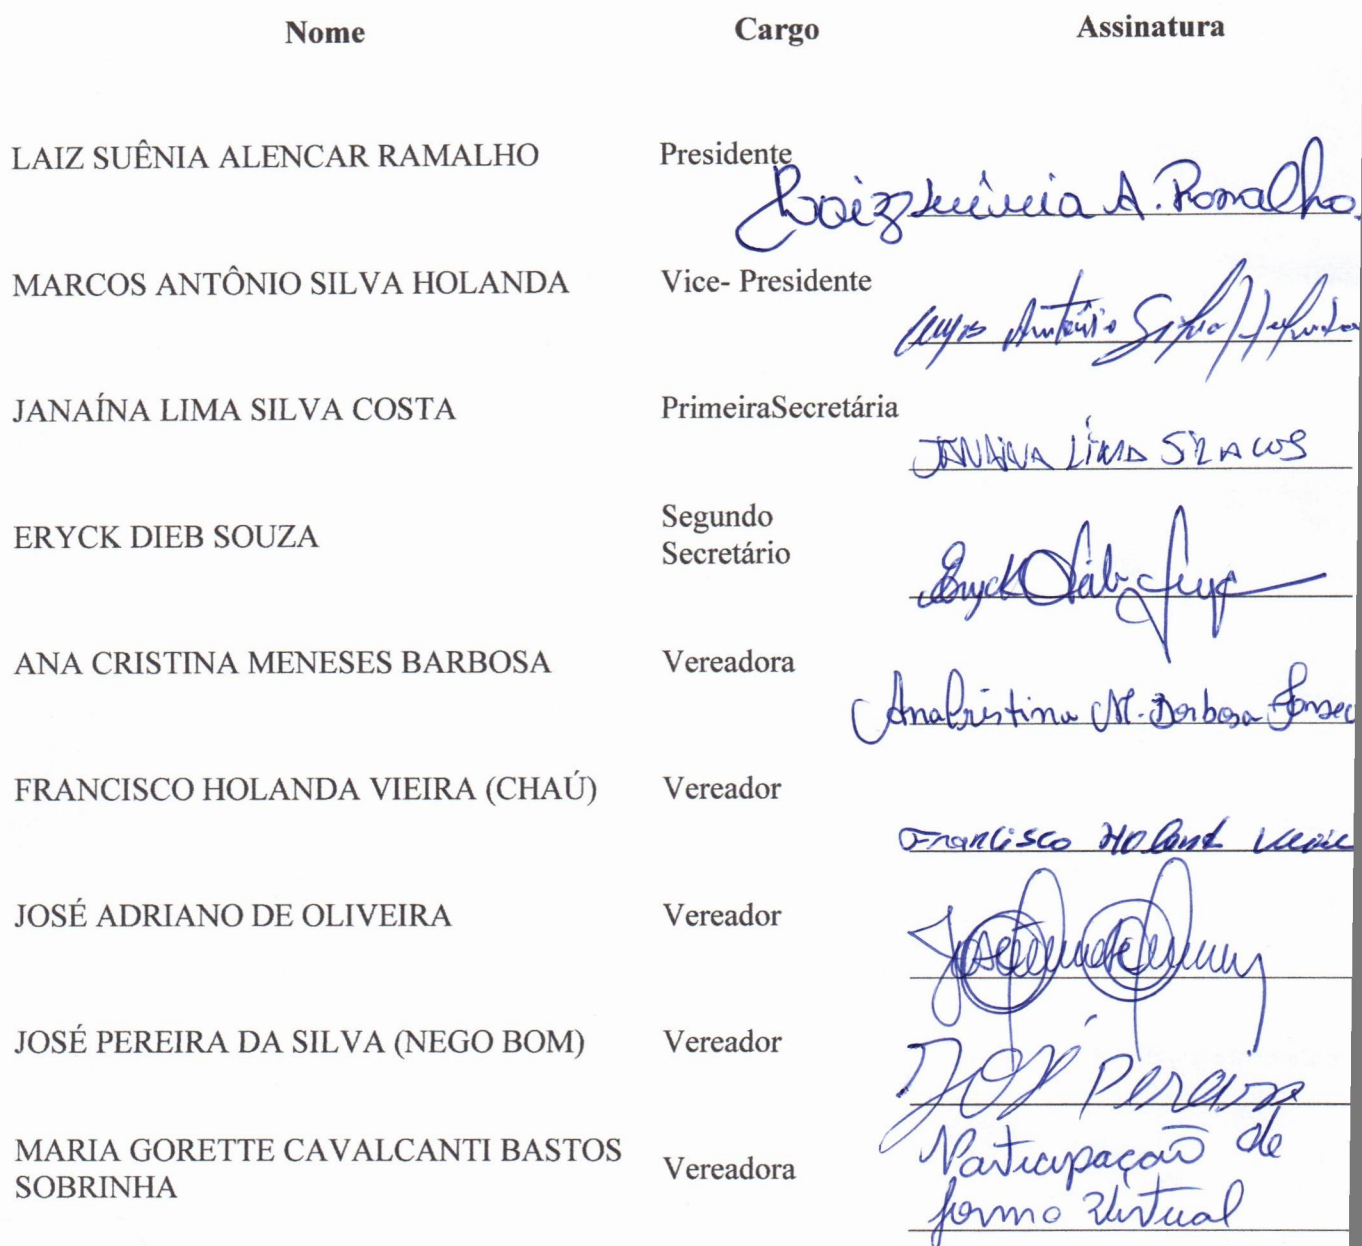 Nome Cargo Assinatura
LAIZ SUÊNIA ALENCAR RAMALHO Presidente
Laiz Suênia A. Ramalho
MARCOS ANTÔNIO SILVA HOLANDA Vice- Presidente
Antônio Silva Holanda
JANAÍNA LIMA SILVA COSTA PrimeiraSecretária
JANAINA LIMA
ERYCK DIEB SOUZA Segundo
Secretário
Eryck Dieb
ANA CRISTINA MENESES BARBOSA Vereadora
Ana Cristina M. Barbosa Fonsec
FRANCISCO HOLANDA VIEIRA (CHAÚ) Vereador
Francisco Holand
JOSÉ ADRIANO DE OLIVEIRA Vereador
José
JOSÉ PEREIRA DA SILVA (NEGO BOM) Vereador
José Pereira
MARIA GORETTE CAVALCANTI BASTOS
SOBRINHA Vereadora
Participação de
forma Virtual